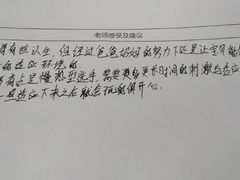 老师感受及建议
有些认生,但经过爸爸妈妈的努力下还是让宝贝能
的适应环境的。
有点是慢热型选手,需要更多更长时间的刺激与适应
一旦适应下来之后就会玩得很开心。